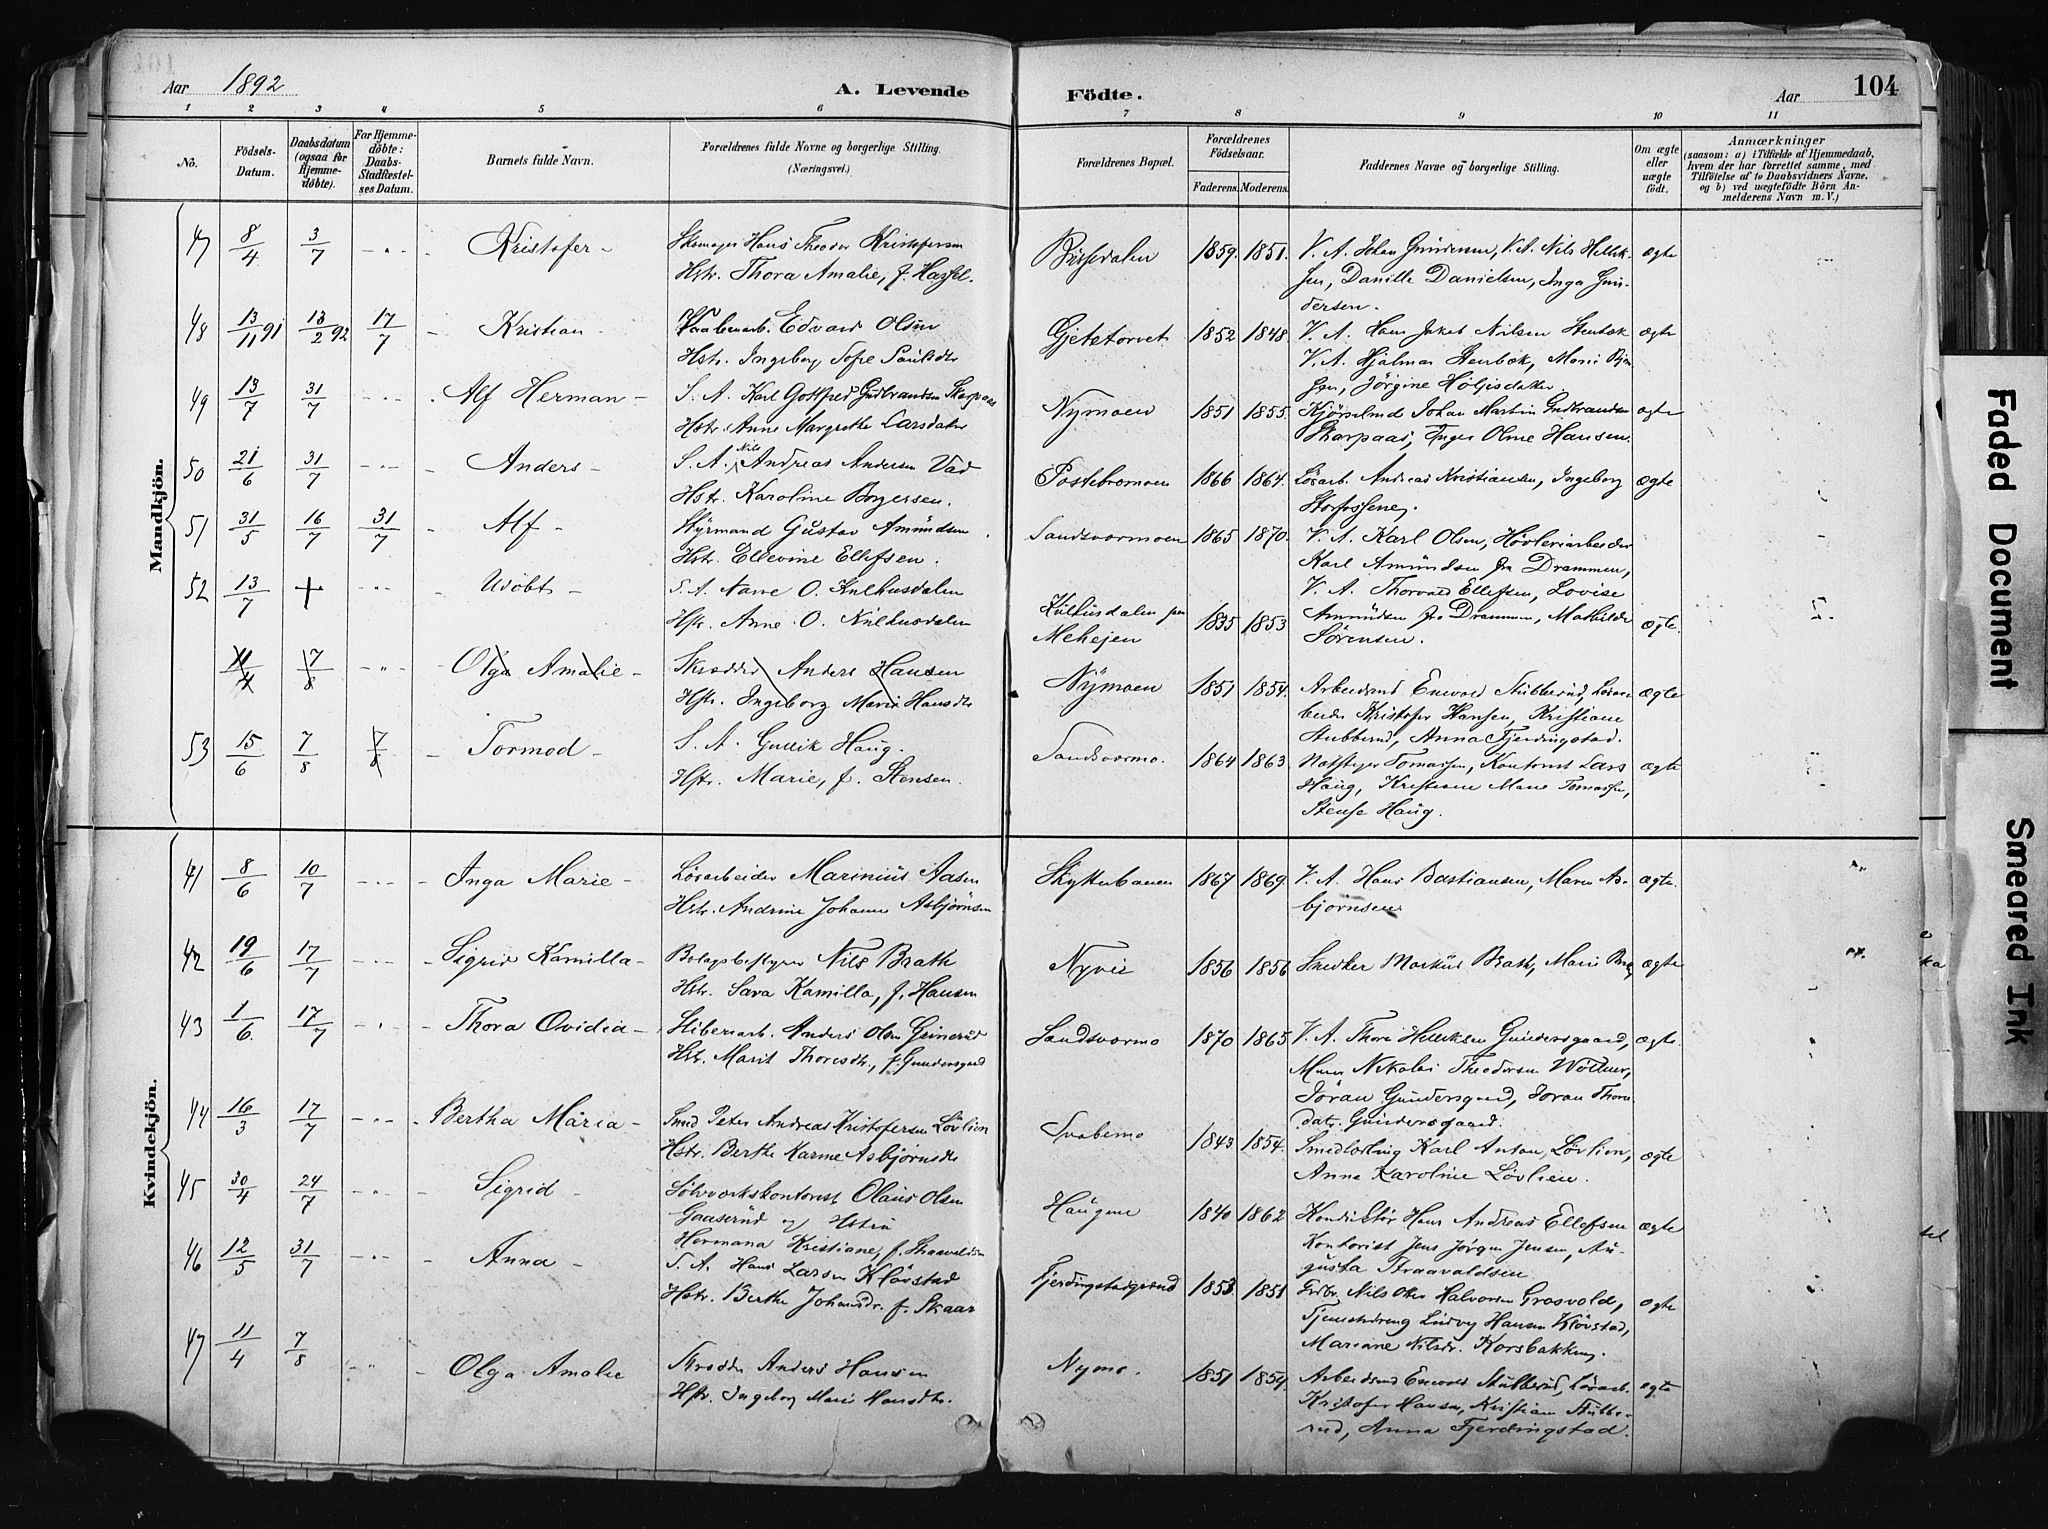 Aar 1892
A. Levende Födte.
Aar 104
1 2 3 4 5 6 7 8 9 10 11
No.
Födsels-Datum.
Daabsdatum (ogsaa for Hjemmedöbte).
For Hjemmedöbte: Daabs-Stadfæstelses Datum.
Barnets fulde Navn.
Forældrenes fulde Navne og borgerlige Stilling. (Næringsvei.)
Forældrenes Bopæl.
Forældrenes Födselsaar.
Faderens. Moderens.
Faddernes Navne og borgerlige Stilling.
Om ægte eller uægte födt.
Anmærkninger
(saasom: a) i Tilfælde af Hjemmedaab, hvem der har forrettet samme, med Tilföielse af to Daabsvidners Navne, og b) ved uægtefödte Börn Anmelderens Navn m. V.)
Mandkjön.
47 8/4 3/7 - " - Kristofer - Skomager Hans Theodor Kristofersen
Hstr. Thora Amalie, f. Hassel.
1859. 1851. V. A. Johan Gundersen, V. A. Nils Hellik-
sen, Danille Danielsen, Inga Gun-
dersen. ægte
48 13/11 91 13/2 92 17/7 - Kristian - Vaabenarb. Edvard Olsen
Hstr. Ingeborg Sofie Paulsdtr
Gjetetorvet 1852 1848. V. A. Hans Jakob Nilsen Stenbæk
V. A. Hjalmar Stenbæk, Marie
Jörgine Höljesdatter. ægte
49 13/7 31/7 - " - Alf Herman - S. A. Karl Gottfred Gudbrandsen Skarpaas
Hstr. Anne Margrethe Larsdatter
Nymoen 1851 1855. Kjörselmd Johan Martin Gudbrandsen
Skarpaas, Inger Olme Hansen. ægte
50 21/6 31/7 - " - Anders - S. A. Nils Andreas Andersen Vad
Hstr. Karoline Borgersen.
Postebromoen 1866 1864. Lösarb. Andreas Kristiansen, Ingeborg ægte
51 31/5 16/7 31/7 - Alf - Styrmand Gustav Amundsen
Hstr. Ellevine Ellefsen.
Sandsværmoen 1865 1870. V. A. Karl Olsen, Hövleriarbeider
Karl Amundsen fra Drammen,
V. A. Thorvald Ellefsen, Lovise
Amundsen fra Drammen, Mathilde
Sörensen. ægte.
52 13/7 + - " - Udöbt - S. A. Narve O. Kulhusdalen
Hstr. Anne O. Kulhusdalen
Kulhusdalen
Mehejen 1835 1853
11/4 7/8 - " - Olga Amalie - Skrædder Anders Hansen
Hstr. Ingeborg Marie Hansdtr
Nymoen 1851 1854. Arbeidsmd Enevold Stubberud, Lösar-
beider Kristofer Hansen, Kristiane
Stubberud, Anna Fjerdingstad. ægte
53 15/6 7/8 7/8 - Tormod - S. A. Gullik Haug.
Hstr. Marie, f. Stensen.
Sandsværmo. 1864 1863. Tomassen, Kontorist Lars
Haug, Kristiane Marie Tomassen,
Haug. ægte
Kvindekjön.
41 8/6 10/7 - " - Inga Marie - Lösarbeider Marinius Aasen
Hstr. Andrine Johanne Asbjörnsen
Skytterbanen 1867 1869. V. A. Hans Bastiansen, Maren As-
björnsen ægte.
42 19/6 17/7 - " - Sigrid Kamilla - Bolagsbestyrer Nils Brath
Hstr. Sara Kamilla, f. Hansen
Nyvei 1856 1856 Snedker Markus Brath, Marie ægte
43 1/6 17/7 - " - Thora Ovidia - Sliberiarb. Anders Olsen Grinerud
Hstr. Marit Thoresdtr., f. Gundersgaard
Sandsværmo 1870 1865 V. A. Thore Helleksen Gundersgaard,
Nikolai Theodorsen Wöllner,
Jöran Gundersgaard, Joran Thores
datr. Gundersgaard. ægte.
44 16/3 17/7 - " - Bertha Maria - Smed Peter Andreas Kristofersen Lövlien
Hstr. Berthe Karine Asbjörnsdtr
Svabemo 1843 1854. Smedlærling Karl Anton Lövlien,
Anna Karoline Lövlien. ægte
45 30/4 24/7 - " - Sigrid - Sölvværkskontorist Olaus Olsen
Gaaserud og Hstru
Hermana Kristiane, f. Straavaldsen
Haugene 1840 1862 Konduktör Hans Andreas Ellefsen
Kontorist Jens Jörgen Jensen, Au-
gusta Straavaldsen ægte
46 12/5 31/7 - " - Anna - S. A. Hans Larsen Klövstad
Hstr. Berthe Johansdr. f. Skaar
Fjerdingstadgrund 1853. 1851 Grdbr. Nils Olsen Halvorsen Grosvold,
Tjenestedreng Ludvig Hansen Klövstad,
Mariane Nilsdr. Korsbakken. ægte
47 11/4 7/8 - " - Olga Amalie Skrædder Anders Hansen
Hstr. Ingeborg Marie Hansdtr.
Nymo. 1851 1854. Arbeidsmd Enevold Stubberud, Lösarb.
Kristofer Hansen, Kristiane Stubbe-
rud, Anna Fjerdingstad. ægte
Faded Document
Smeared Ink